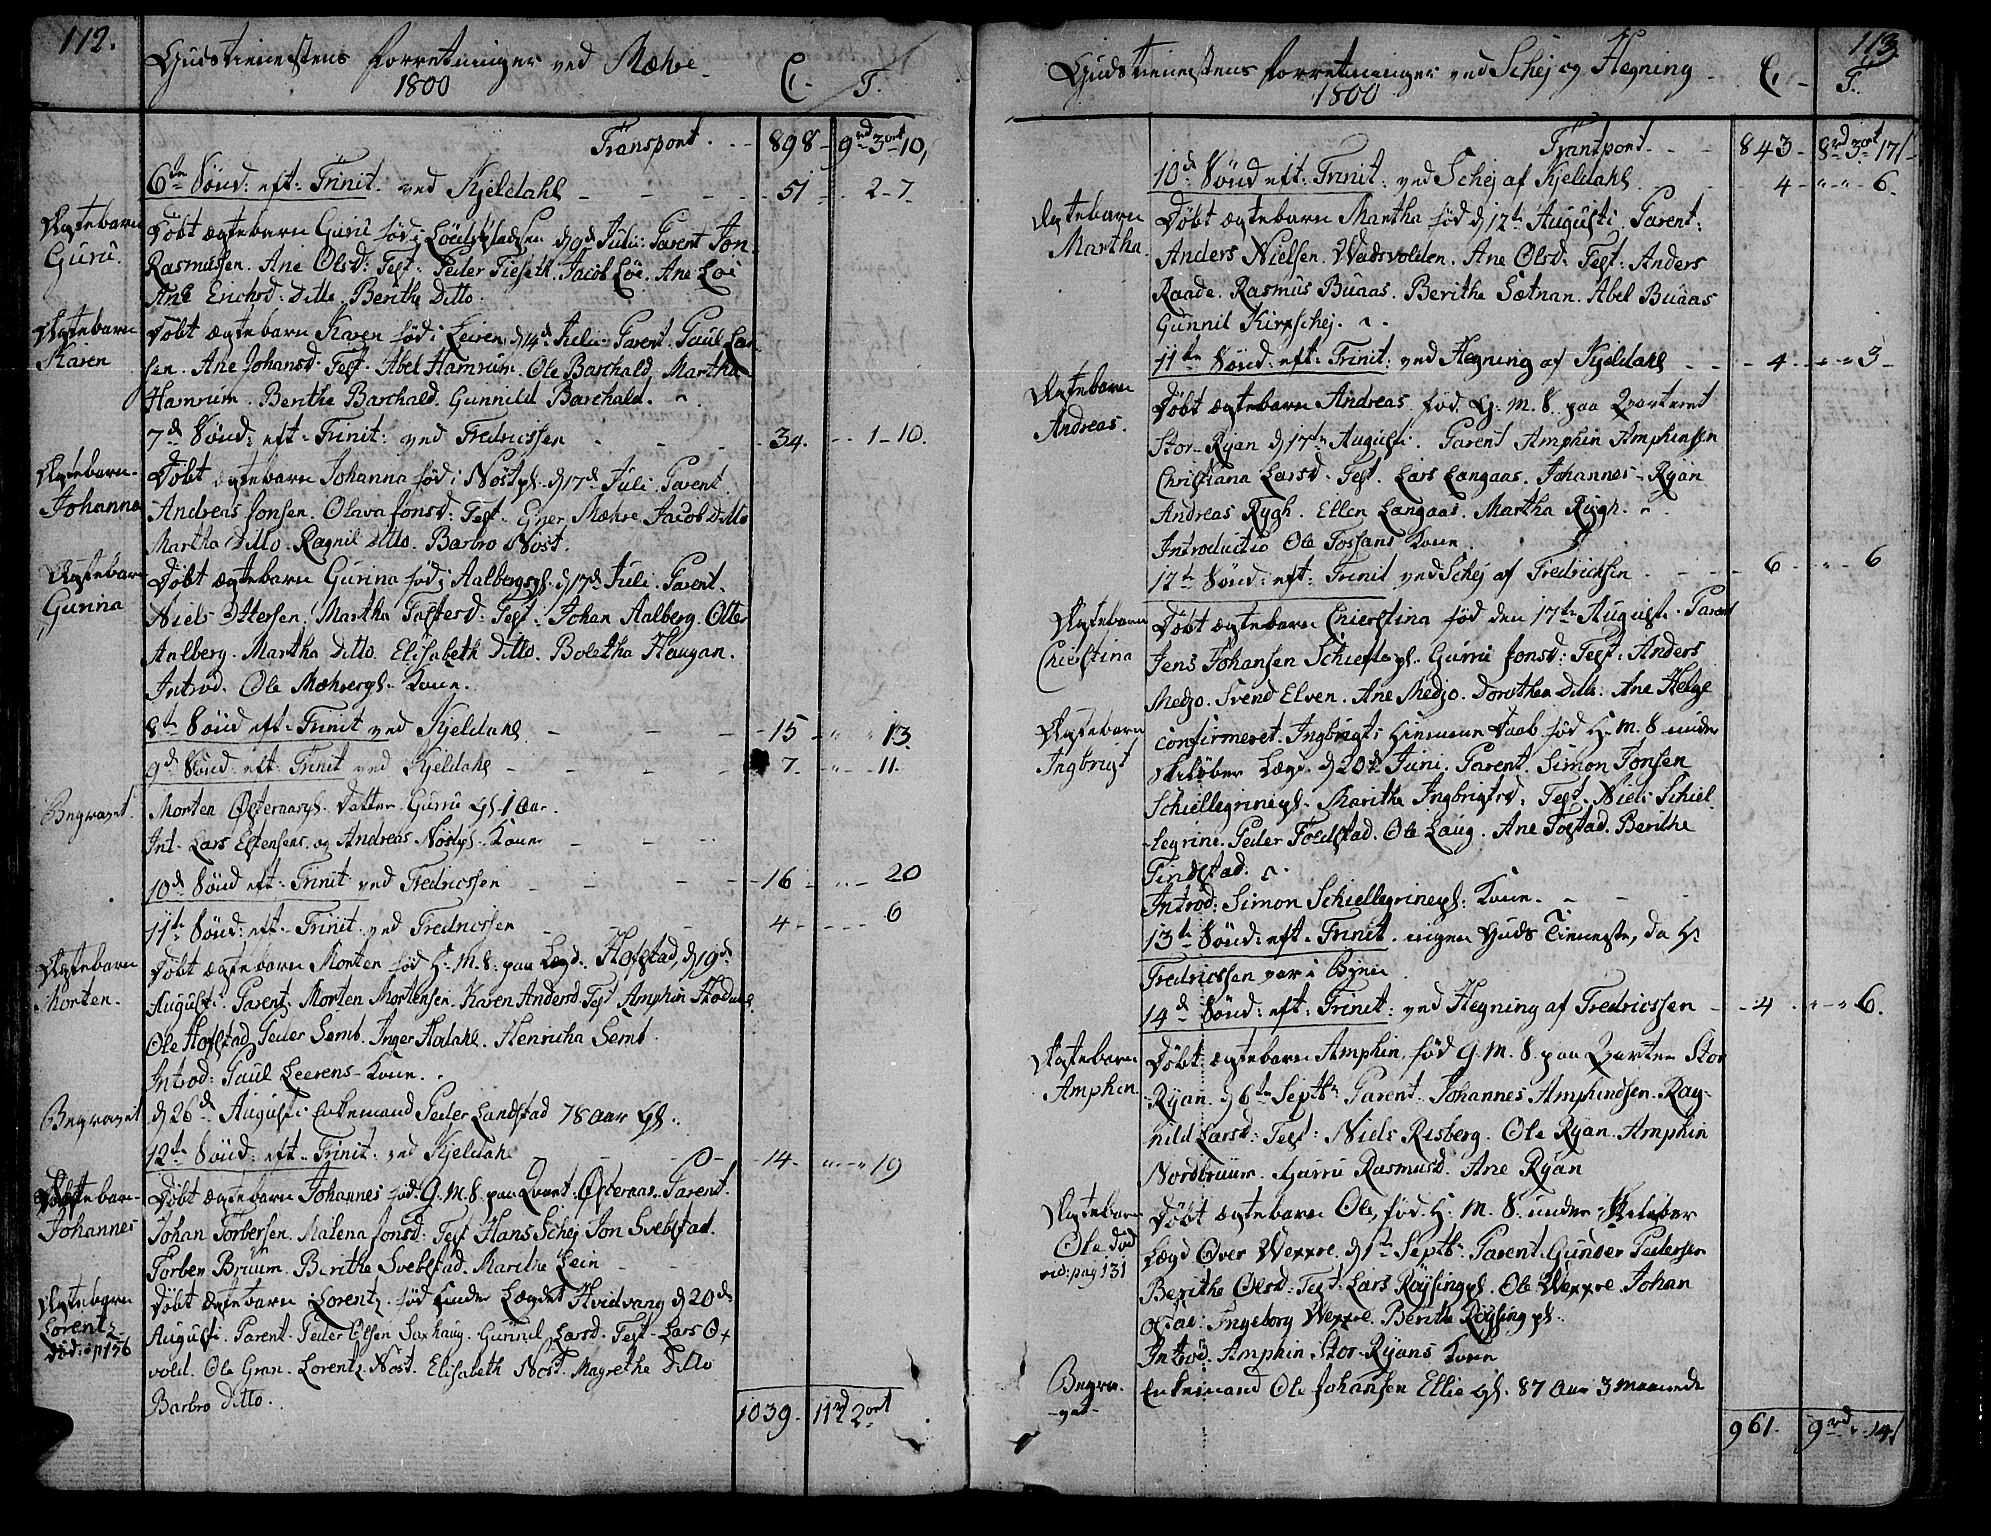 112.
Gudstienestens forretninger ved Mæhre
1800
C. T.
Transport. 898 - 9rd 3ort 10,
6te Sönd: eft: Trinit. ved Kjeldahl - - - 51 - 2 - 7.
Ægtebarn Guru.
Döbt ægtebarn Guru föd i d 9d Julii: Parent Jon
Rasmussen. Ane Olsd: Test: Peder Tieseth. Jacob Löe. Ane Löe
Ane Erichsd: Ditto. Berithe Ditto.
Ægtebarn Karen
Döbt ægtebarn Karen föd i Leiren, d 14d Julii Parent. Paul Lar-
sen. Ane Johansd. Test. Abel Hamrum. Ole Barchald, Martha
Hamrum. Berithe Barchald. Gunnild Barchald.
7d Sönd: eft: Trinit: ved Fredricssen - 34. - 1 - 10.
Ægtebarn. Johanna
Döbt ægtebarn Johanna föd i Nöstpl. d 17d Juli. Parent.
Andreas Jonsen. Olava Jonsd: Test. Mæhre Jacob Ditto
Martha Ditto. Ragnil Ditto. Barbro Nöst.
Ægtebarn Gurina
Döbt ægtebarn Gurina föd i Aalbergspl. d 17d Juli. Parent.
Niels Ottersen, Martha Tostersd: Test: Johan Aalberg. Otter
Aalberg. Martha Ditto. Elisabeth Ditto. Boletha Haugan.
Introd. Ole Mæhrepl. Kone.
8te Sönd eft: Trinit ved Kjeldahl - 15 - 13.
9d Sönd eft: Trinit ved Kjeldahl - 7. - 11.
Begravet.
Morten Österaaspl. Datter Gurru gl. 1 Aar.
Int. Lars Estensens og Andreas Nöstpl. Kone
10d Sönd eft: Trinit ved Fredricssen - 16 - 20
11te Sönd: eft: Trinit: ved Fredricssen - 4 - 6
Ægtebarn Morten.
Döbt ægtebarn Morten föd H: M: S: paa Lægd. Hofstad, d 19d
Augusti. Parent: Morten Mortensen. Karen Andersd. Test Amphin
Ole Hofstad Peder Semb. Inger Hodahl. Henricha Semb.
Introd: Paul Leerens Kone.
Begravet
d 26d Augusti Enkemand Peder Landstad 78 Aar gl.
12te Sönd: eft: Trinit: ved Kjeldahl - 14 - 19
Ægtebarn Johannes
Döbt ægtebarn Johannes föd G. M. S. paa Qvart: Österaas. Parent.
Johan Torbersen. Malena Jonsd: Test Hans Schej Jon Svebstad.
Torben Bruum. Berithe Svebstad. Marithe Lein
Ægtebarn Lorentz död: p 156
Döbt ægtebarn Lorentz. föd under Lægdet Hvidvang d 20d
Augusti. Parent. Peder Olsen Saxhaug. Gunnil Larsd. Test. Lars Ox-
vold. Ole Gran. Lorentz Nöst. Elisabeth Nöst. Magrethe Ditto
Barbro Ditto.
1039. 11rd 2ort
113
Gudstienestens forretninger ved Schej og Hegning
1800
C T.
Trantport - 843 - 8rd 3ort 17
10d Sönd eft: Trinit: ved Schej af Kjeldahl. - 4 - 6.
Ægtebarn Martha
Döbt ægtebarn Martha föd d 12te Augusti Parent:
Anders Nielsen. Wadsvolden. Ane Olsd: Test: Anders
Raade. Rasmus Buaas. Berithe Sætnan. Abel Buaas
Gunnil Kirkschej.
11te Sönd: eft: Trinit: ved Hegning af Kjeldahl - 4 - 3
Ægtebarn Andreas.
Döbt ægtebarn Andreas. föd G. M. S. paa Qvarteret
Stor-Ryan d 17te Augusti. Parent Amphin Amphinsen
Christiana Larsd. Test. Lars Langaas. Johannes Ryan
Andreas Rygh. Ellen Langaas. Martha Rygh.
Introductio Ole Tossans Kone.
12te Sönd: eft: Trinit ved Schej af Fredricksen - 6 - 6
Ægtebarn Chierstina
Döbt ægtebarn Chierstina föd den 17te Augusti. Parent
Jens Johansen Gurru Jonsd: Test: Anders
Medjo. Svend Elven. Ane Medjo. Dorothea Ditto: Ane Helge
Ægtebarn Ingbrigt
Confirmeret. Ingbrigts Hiemme Daab föd H. M. S under
Skilöber Lægd. d 20de Juni. Parent. Simon Jonsen
Schiellegrinepl. Marithe Ingbrigtsd. Test. Niels Schiel-
legrine. Peder Foelstad. Ole Laug. Ane Foestad. Berithe
Tindstad.
Introd: Simon Schiellegrinepl: Kone.
13te Sönd: eft: Trinit. ingen Guds Tieneste, da H:
Fredricssen var i Byen
14d Sönd: eft: Trinit: ved Hegning af Fredricssen - 4 - 6.
Ægtebarn Amphin.
Döbt ægtebarn Amphin, föd G. M. S. paa Qvarter Stor
Ryan. d 6te Septbr Parent. Johannes Amphindsen. Rag-
nild Larsd: Test: Niels Risberg. Ole Ryan. Amphin
Nordbruum. Gurru Rasmusd. Ane Ryan
Ægtebarn Ole död vid: pag 131
Döbt ægtebarn Ole, föd H: M. S. under Skilöber
Lægd Over Werre. d 1te Septb: Parent. Gunder Pedersen
Berithe Olsd: Test: Lars Röysingpl. Ole Werre. Johan
Ingeborg Werre. Berithe Röysingpl.
Introd. Amphin Stor-Ryans Kone
Begra-vet
Enkemand Ole Johansen Ellie gl. 87 Aar 3 maaneder
961. 9rd 14